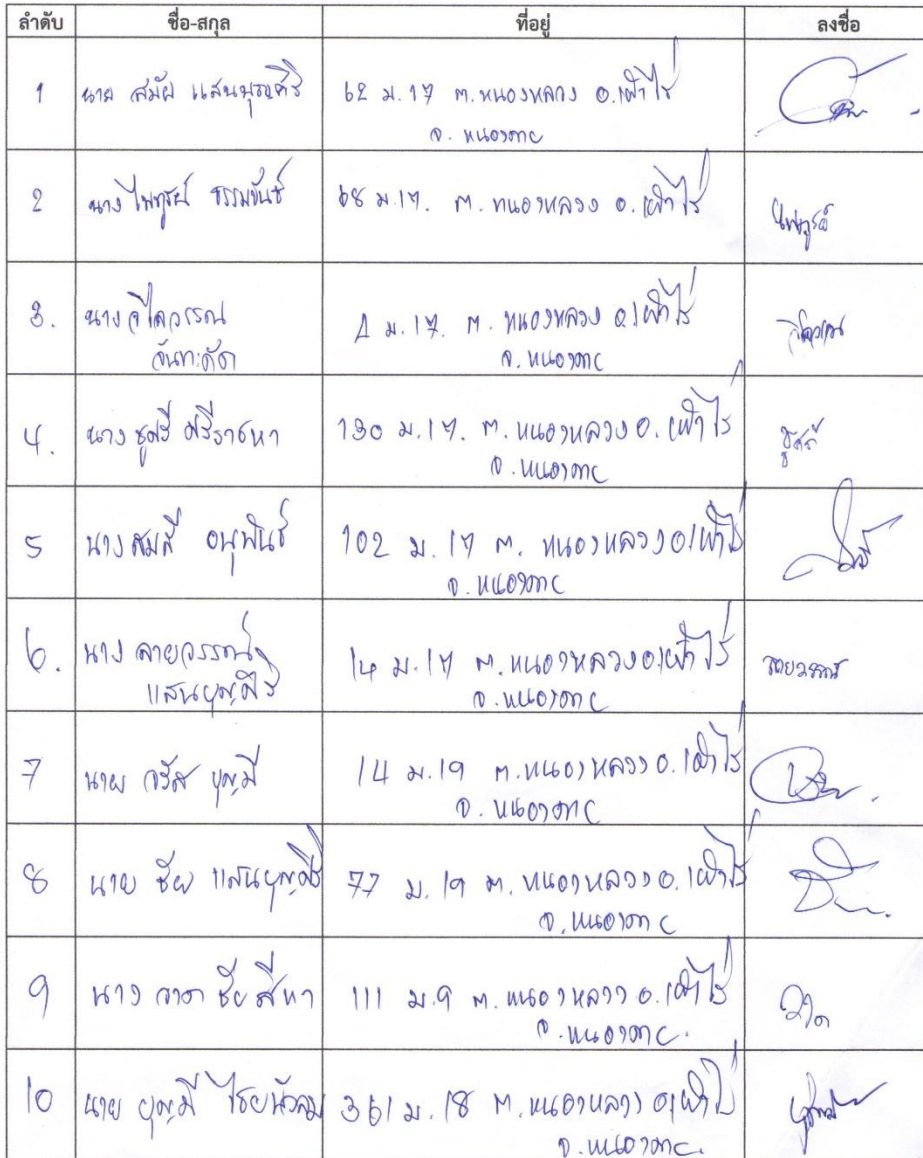 ลำดับ ชื่อ-สกุล ที่อยู่ ลงชื่อ
1 นาย สมัย แสนบุญศิริ 62 ม.17 ต.หนองหลวง อ.เฝ้าไร่
จ. หนองคาย
2 นาง ไพฑูรย์ ธรรมขันธ์ 68 ม.17. ต. หนองหลวง อ.เฝ้าไร่ ไพฑูรย์
3. นาง วิไลวรรณ ม.17. ต. หนองหลวง อ.เฝ้าไร่
จันทะคัด จ. หนองคาย
4. นาง ชูศรี ศรีราชหา 130 ม.17. ต. หนองหลวง อ.เฝ้าไร่ ชูศรี
จ. หนองคาย
5 นางสมสี อนุพันธ์ 102 ม.17 ต. หนองหลวง อ.เฝ้าไร่
จ. หนองคาย
6. นาง ลายวรรณ์ 14 ม.17 ต.หนองหลวง อ.เฝ้าไร่
แสนบุญศิริ จ. หนองคาย
7 นาย จรัส บุญมี 14 ม.19 ต.หนองหลวง อ.เฝ้าไร่
จ. หนองคาย
8 นาย ชัย แสนบุญศิริ 77 ม.19 ต. หนองหลวง อ.เฝ้าไร่
จ. หนองคาย
9 นาง วาด ชัยสีหา 111 ม.9 ต.หนองหลวง อ.เฝ้าไร่ วาด
จ. หนองคาย.
10 นาย บุญมี ไชยนัวลม 361 ม.18 ต.หนองหลวง อ.เฝ้าไร่
จ. หนองคาย.